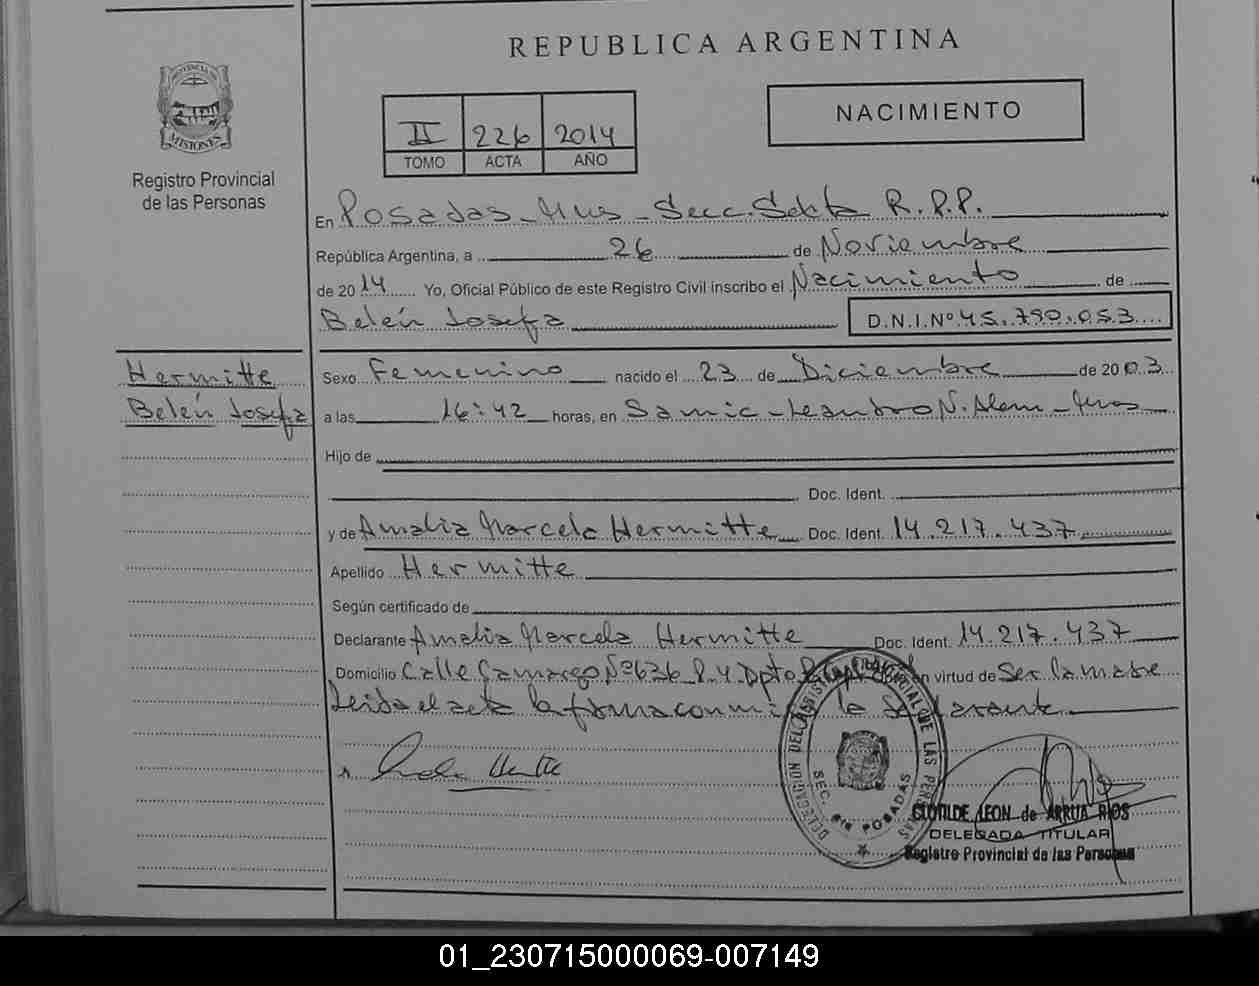 REPUBLICA ARGENTINA
PROVINCIA DE
MISIONES
Registro Provincial
de las Personas
II 226 2014
TOMO ACTA AÑO
NACIMIENTO
En Posadas - Mnes - Secc. Sexta R.P.P.
República Argentina, a 26 de Noviembre
de 2014 Yo, Oficial Público de este Registro Civil inscribo el Nacimiento de
Belén Josefa D.N.I.Nº 45.790.053
Hermitte
Belén Josefa
Sexo Femenino nacido el 23 de Diciembre de 2003
a las 16:42 horas, en Samic - Leandro N. Alem - Mnes
Hijo de
Doc. Ident.
y de Amalia Marcela Hermitte Doc. Ident. 14.217.437
Apellido Hermitte
Según certificado de
Declarante Amalia Marcela Hermitte Doc. Ident. 14.217.437
Domicilio Calle Camargo Nº 636 P. 4 Dpto en virtud de Ser la madre
Leida el acta la firma conmigo la declarante
SEC. 6ta POSADAS
CLOTILDE LEON de ARRUA RIOS
DELEGADA TITULAR
Registro Provincial de las Personas
01_230715000069-007149